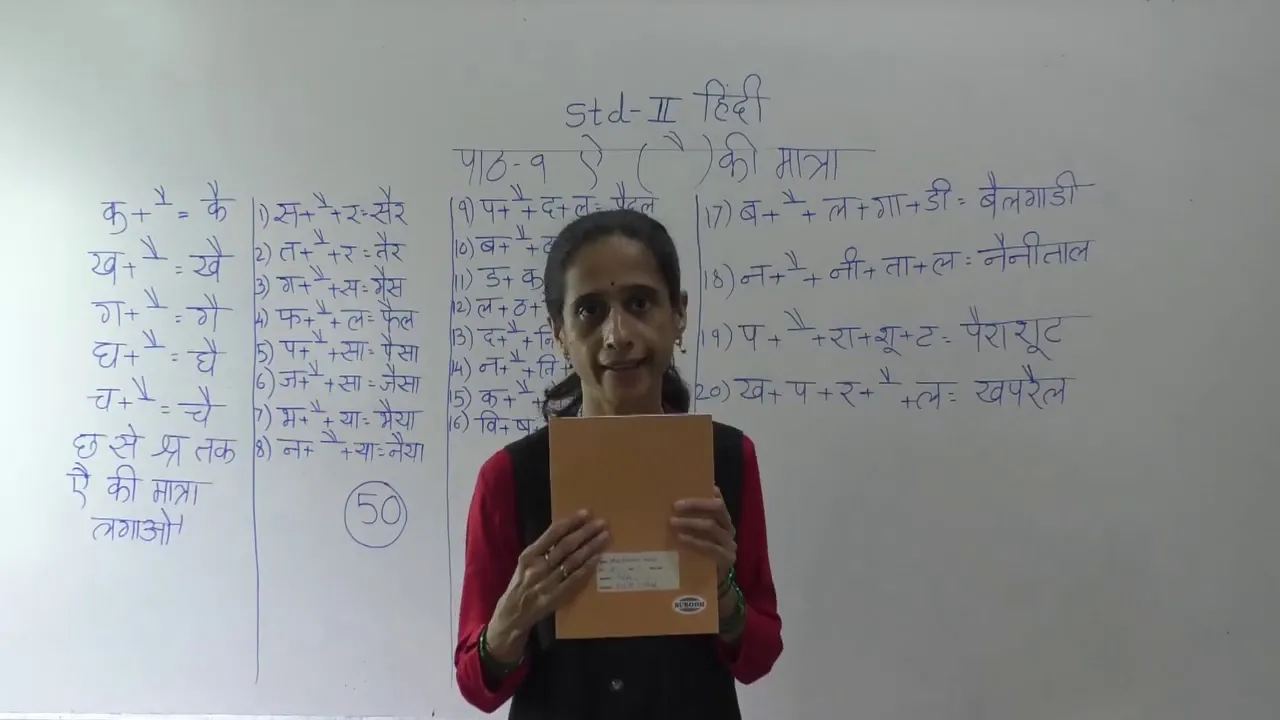 Std-II हिंदी
पाठ-९ ऐ ( ै ) की मात्रा
क + ै = कै
ख + ै = खै
ग + ै = गै
घ + ै = घै
च + ै = चै
छ से श्र तक
ऐ की मात्रा
लगाओ
1) स + ै + र = सैर
2) त + ै + र = तैर
3) ग + ै + स = गैस
4) फ + ै + ल = फैल
5) प + ै + सा = पैसा
6) ज + ै + सा = जैसा
7) भ + ै + या = भैया
8) न + ै + या = नैया
50
9) प + ै + द + ल = पैदल
10) ब + ै +
11) ड + क
12) ल + ठ +
13) द + ै + नि
14) न + ै + ति
15) क + ै +
16) वि + ष
17) ब + ै + ल + गा + डी = बैलगाडी
18) न + ै + नी + ता + ल = नैनीताल
19) प + ै + रा + शू + ट = पैराशूट
20) ख + प + र + ै + ल = खपरैल
SUBODH